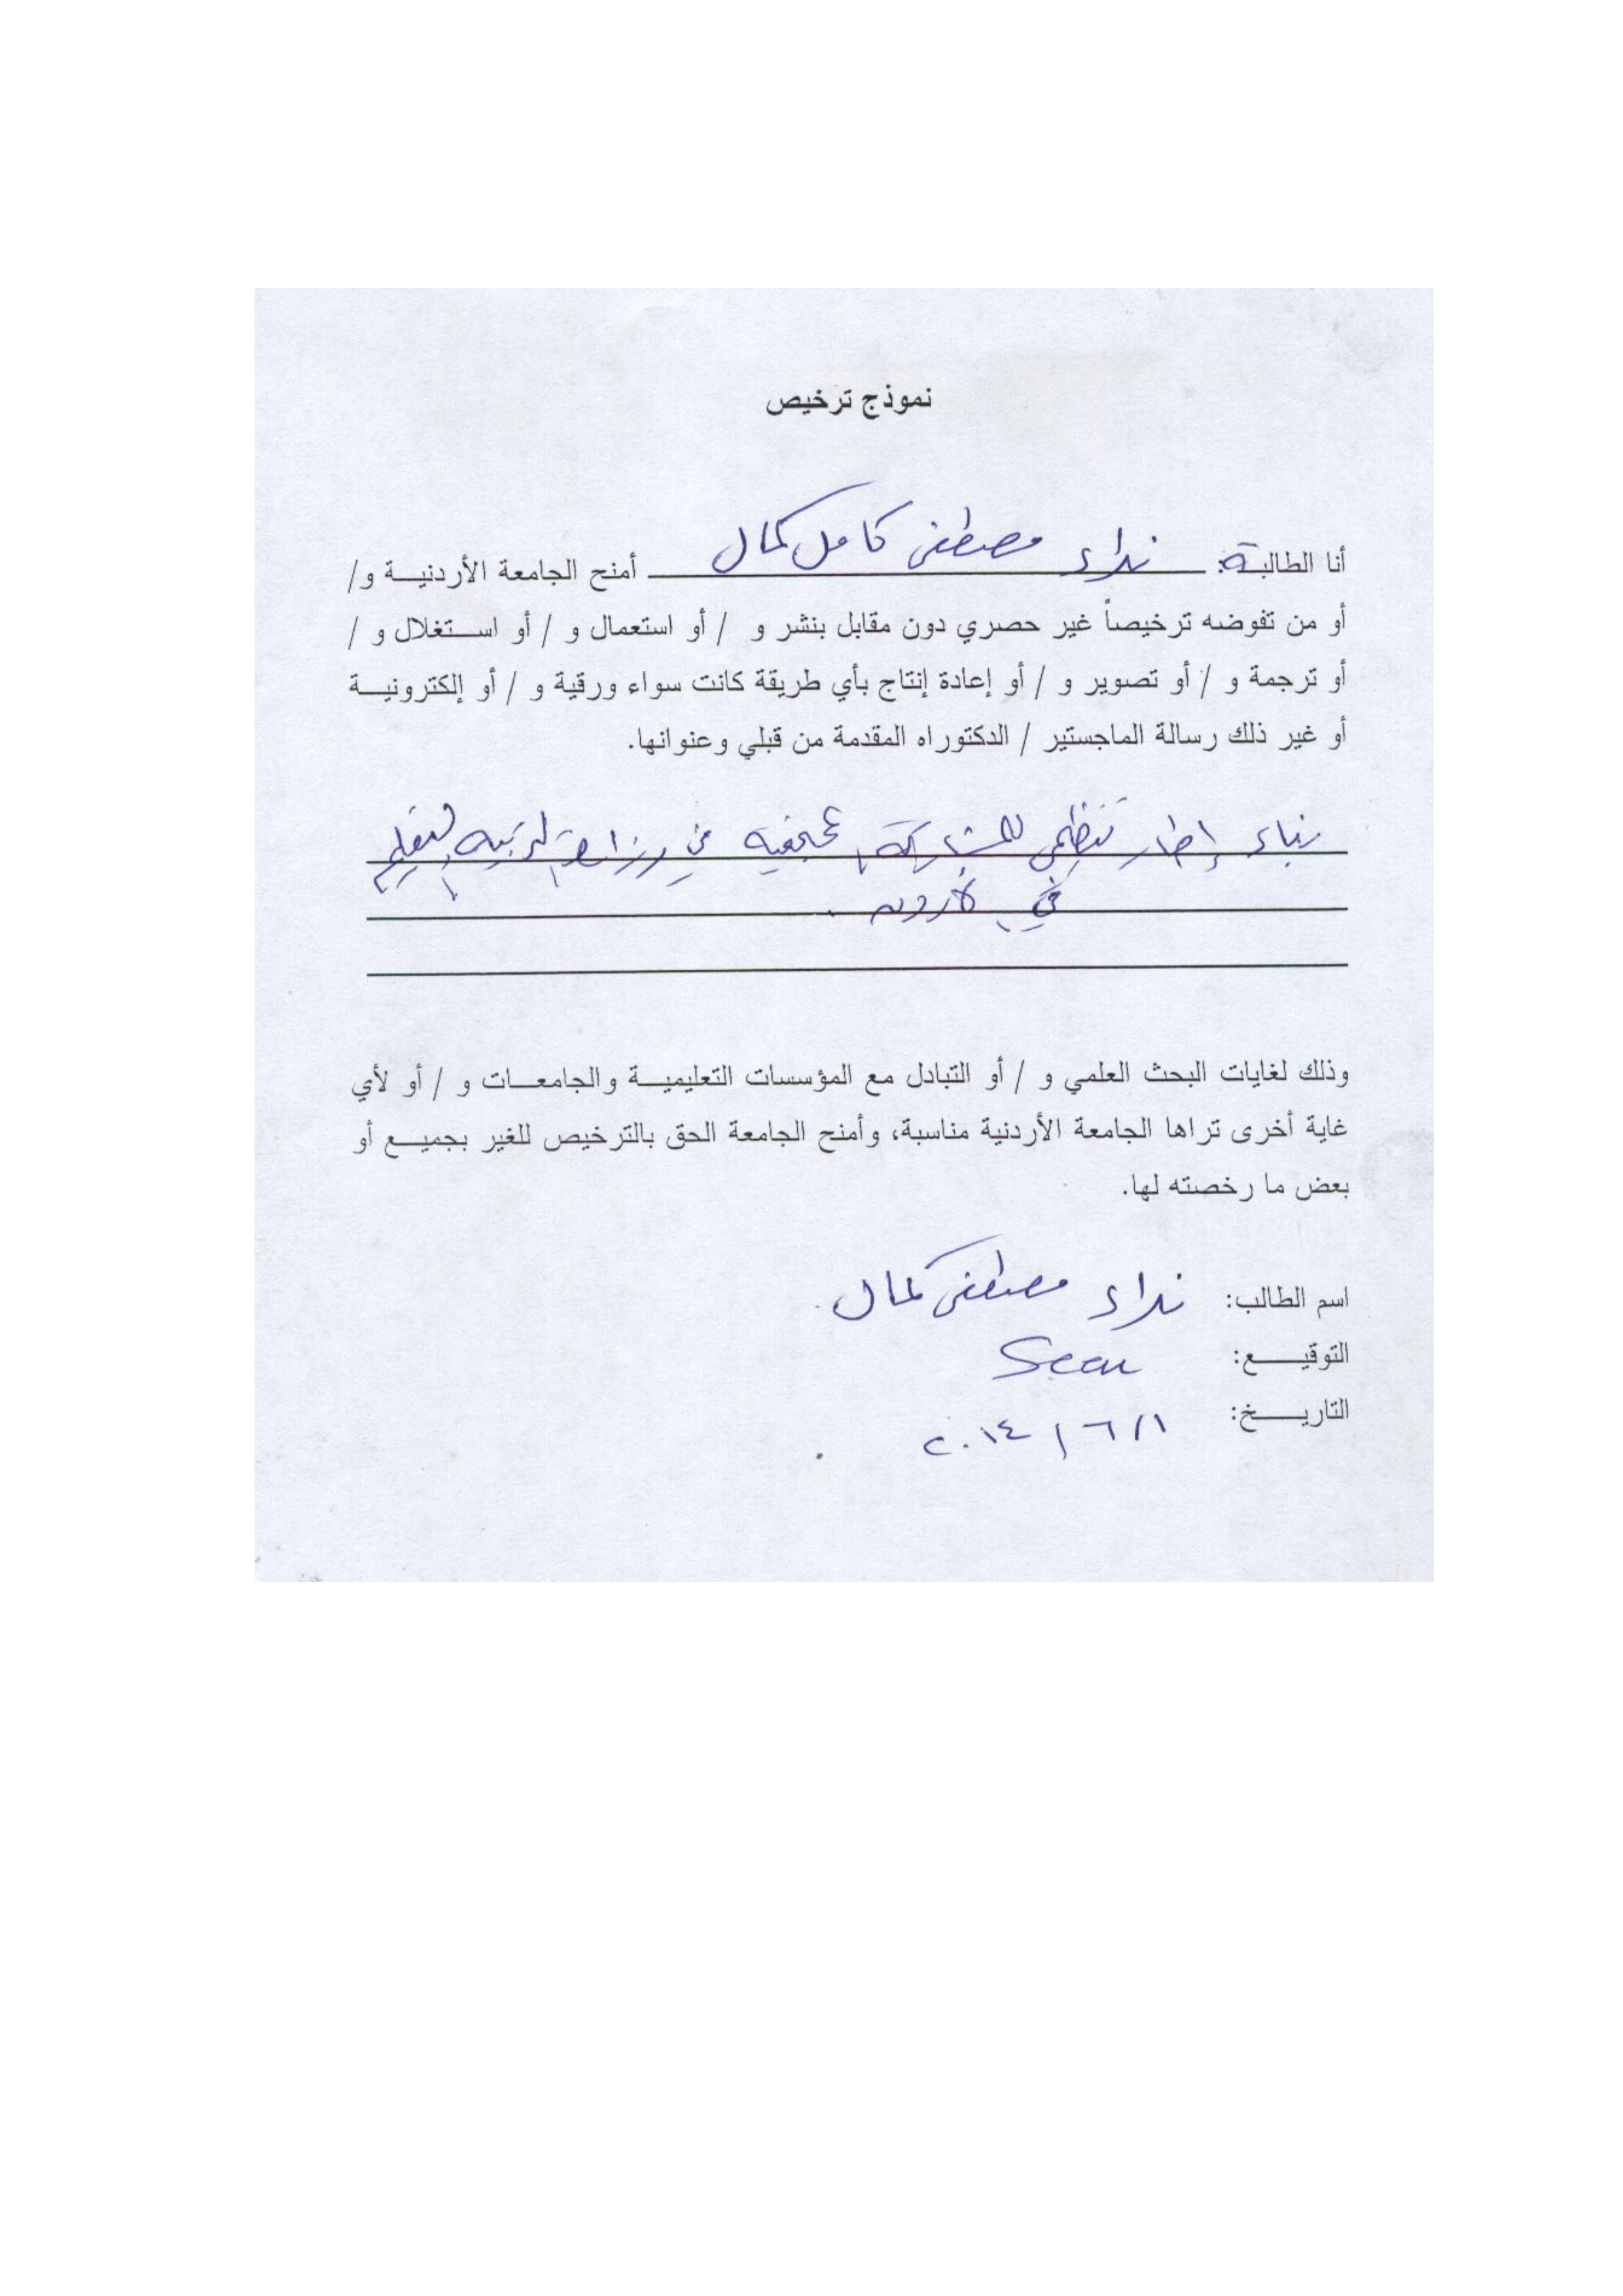 نموذج ترخيص
أنا الطالبة: نداء مصطفى كامل كمال أمنح الجامعة الأردنية و/
أو من تفوضه ترخيصاً غير حصري دون مقابل بنشر و / أو استعمال و / أو استغلال و /
أو ترجمة و / أو تصوير و / أو إعادة إنتاج بأي طريقة كانت سواء ورقية و / أو إلكترونية
أو غير ذلك رسالة الماجستير / الدكتوراه المقدمة من قبلي وعنوانها.
بناء إطار تنظيمي للمشاركة في وزارة التربية والتعليم
في الأردن.
وذلك لغايات البحث العلمي و / أو التبادل مع المؤسسات التعليمية والجامعات و / أو لأي
غاية أخرى تراها الجامعة الأردنية مناسبة، وأمنح الجامعة الحق بالترخيص للغير بجميع أو
بعض ما رخصته لها.
اسم الطالب: نداء مصطفى كمال
التوقيع:
التاريخ: ٢٠١٤/٦/١